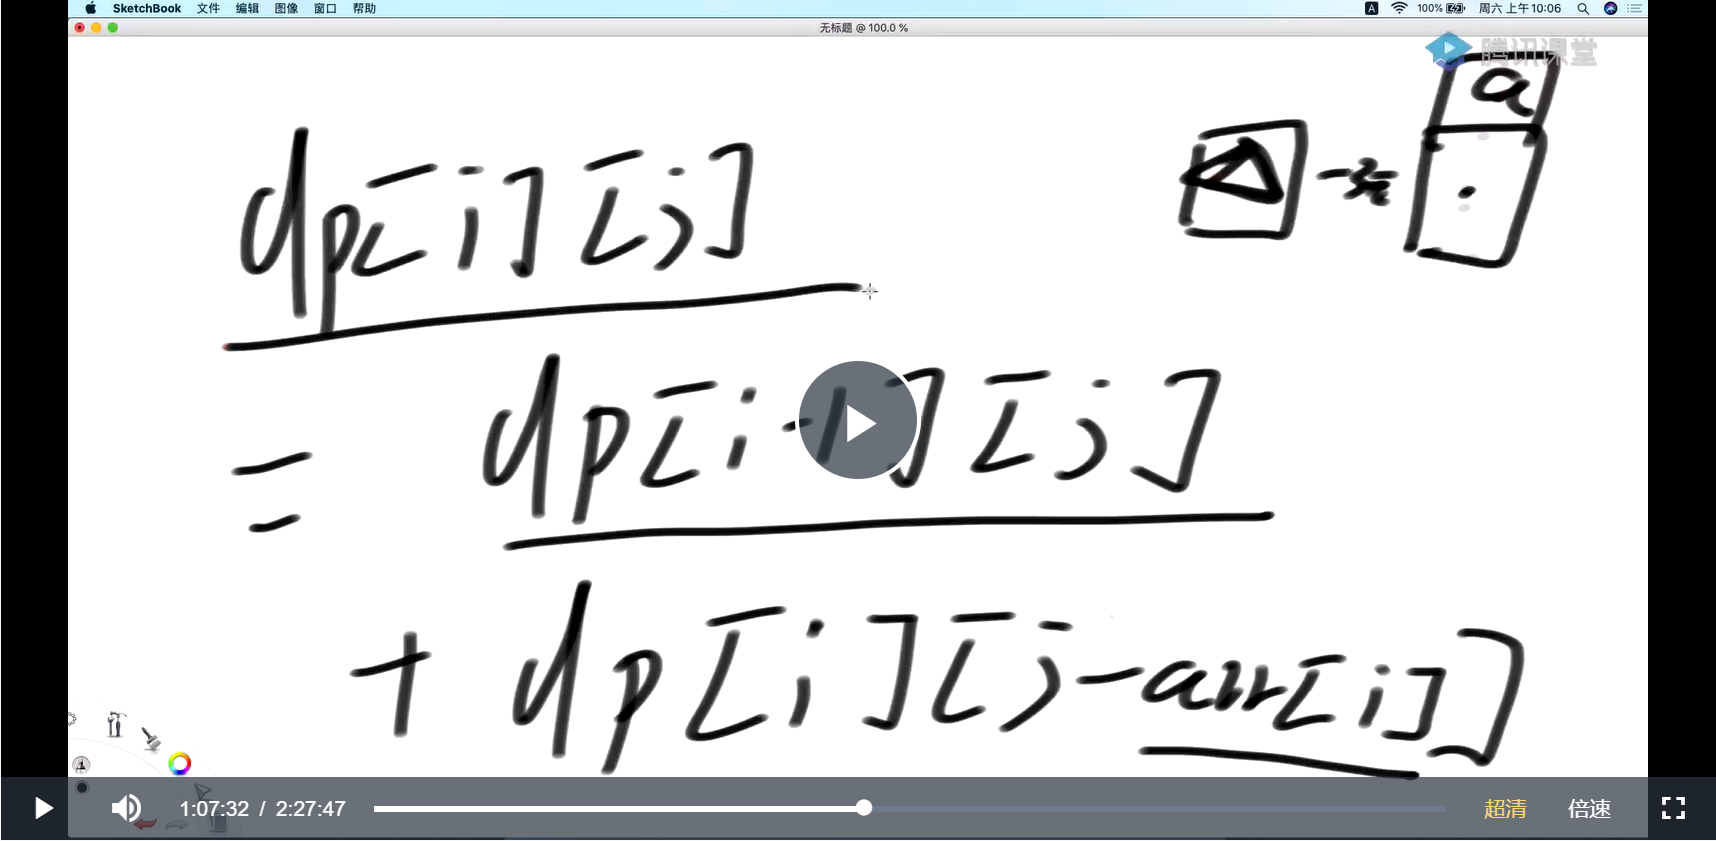 SketchBook 文件 编辑 图像 窗口 帮助
A 100% 周六 上午10:06
无标题 @ 100.0 %
腾讯课堂
a
dp[i][j]
= dp[i-1][j]
+ dp[i][j-arr[i]]
1:07:32 / 2:27:47 超清 倍速